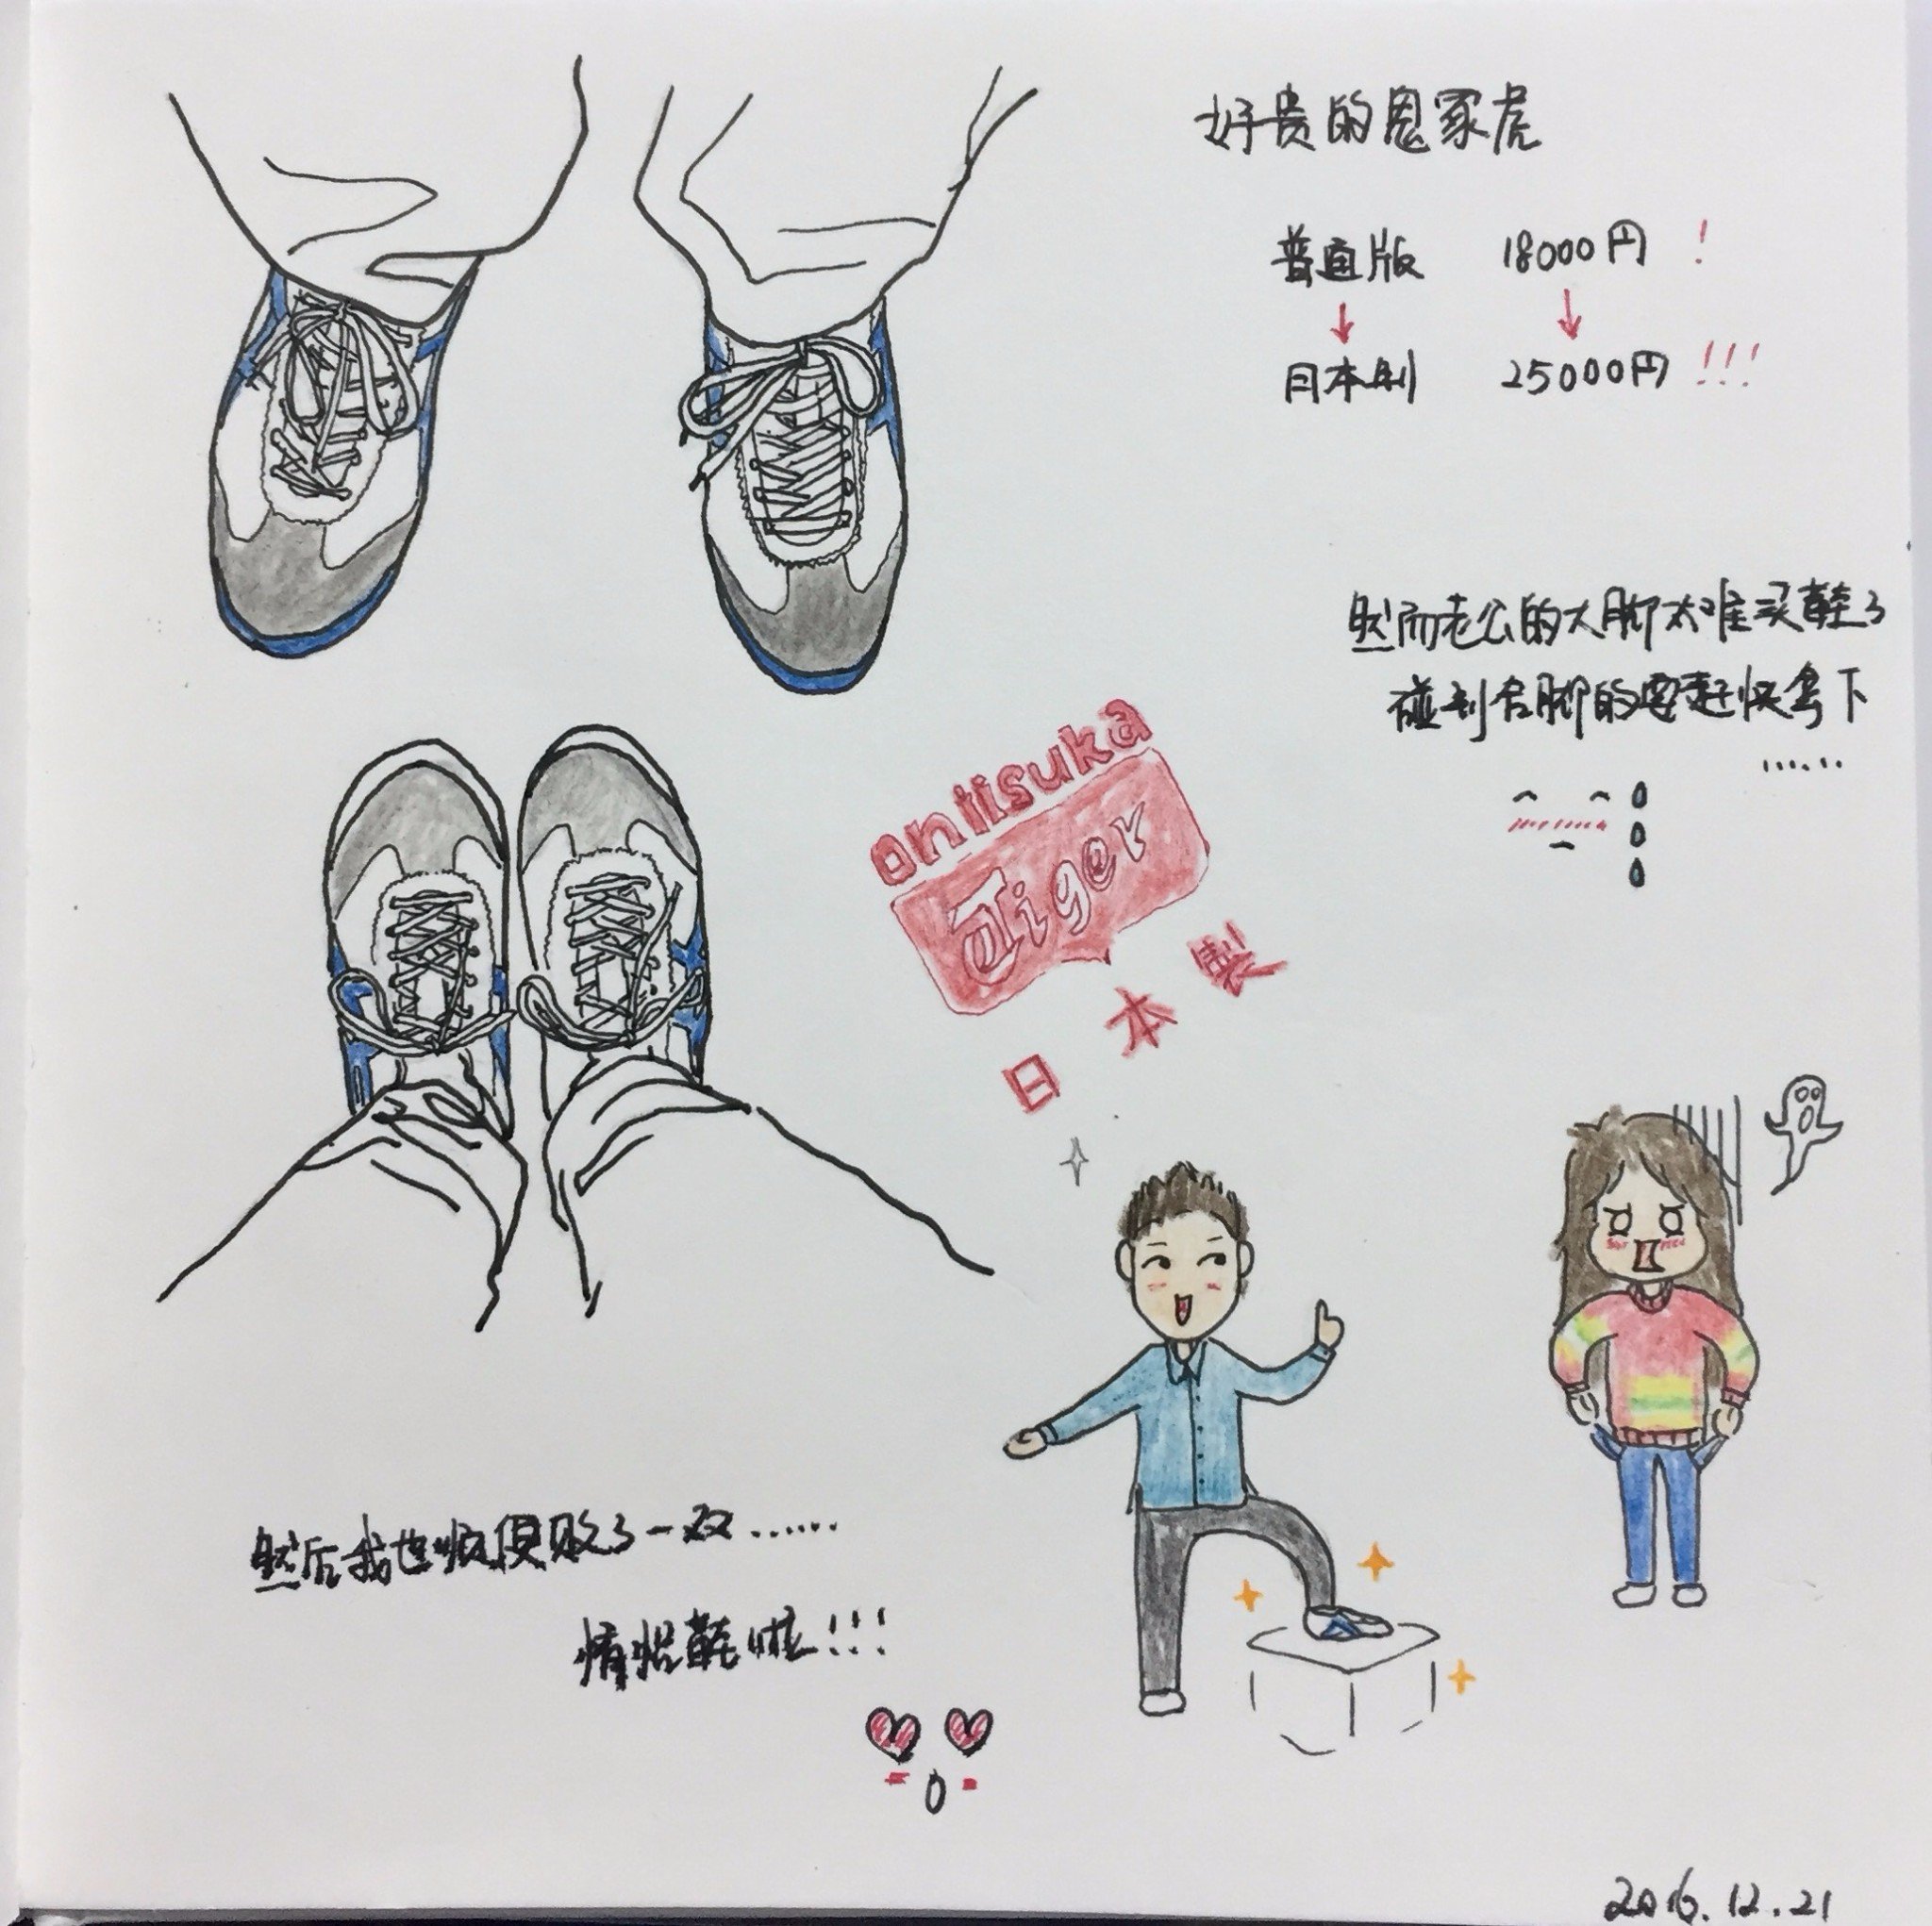 好贵的鬼冢虎
普通版 18000円 !
日本制 25000円 !!!
然而老公的大脚太难买鞋了
碰到合脚的要赶快拿下
......
oniisuka
Tiger
日本製
然后我也顺便败了一双......
情侣鞋啦!!!
2016.12.21